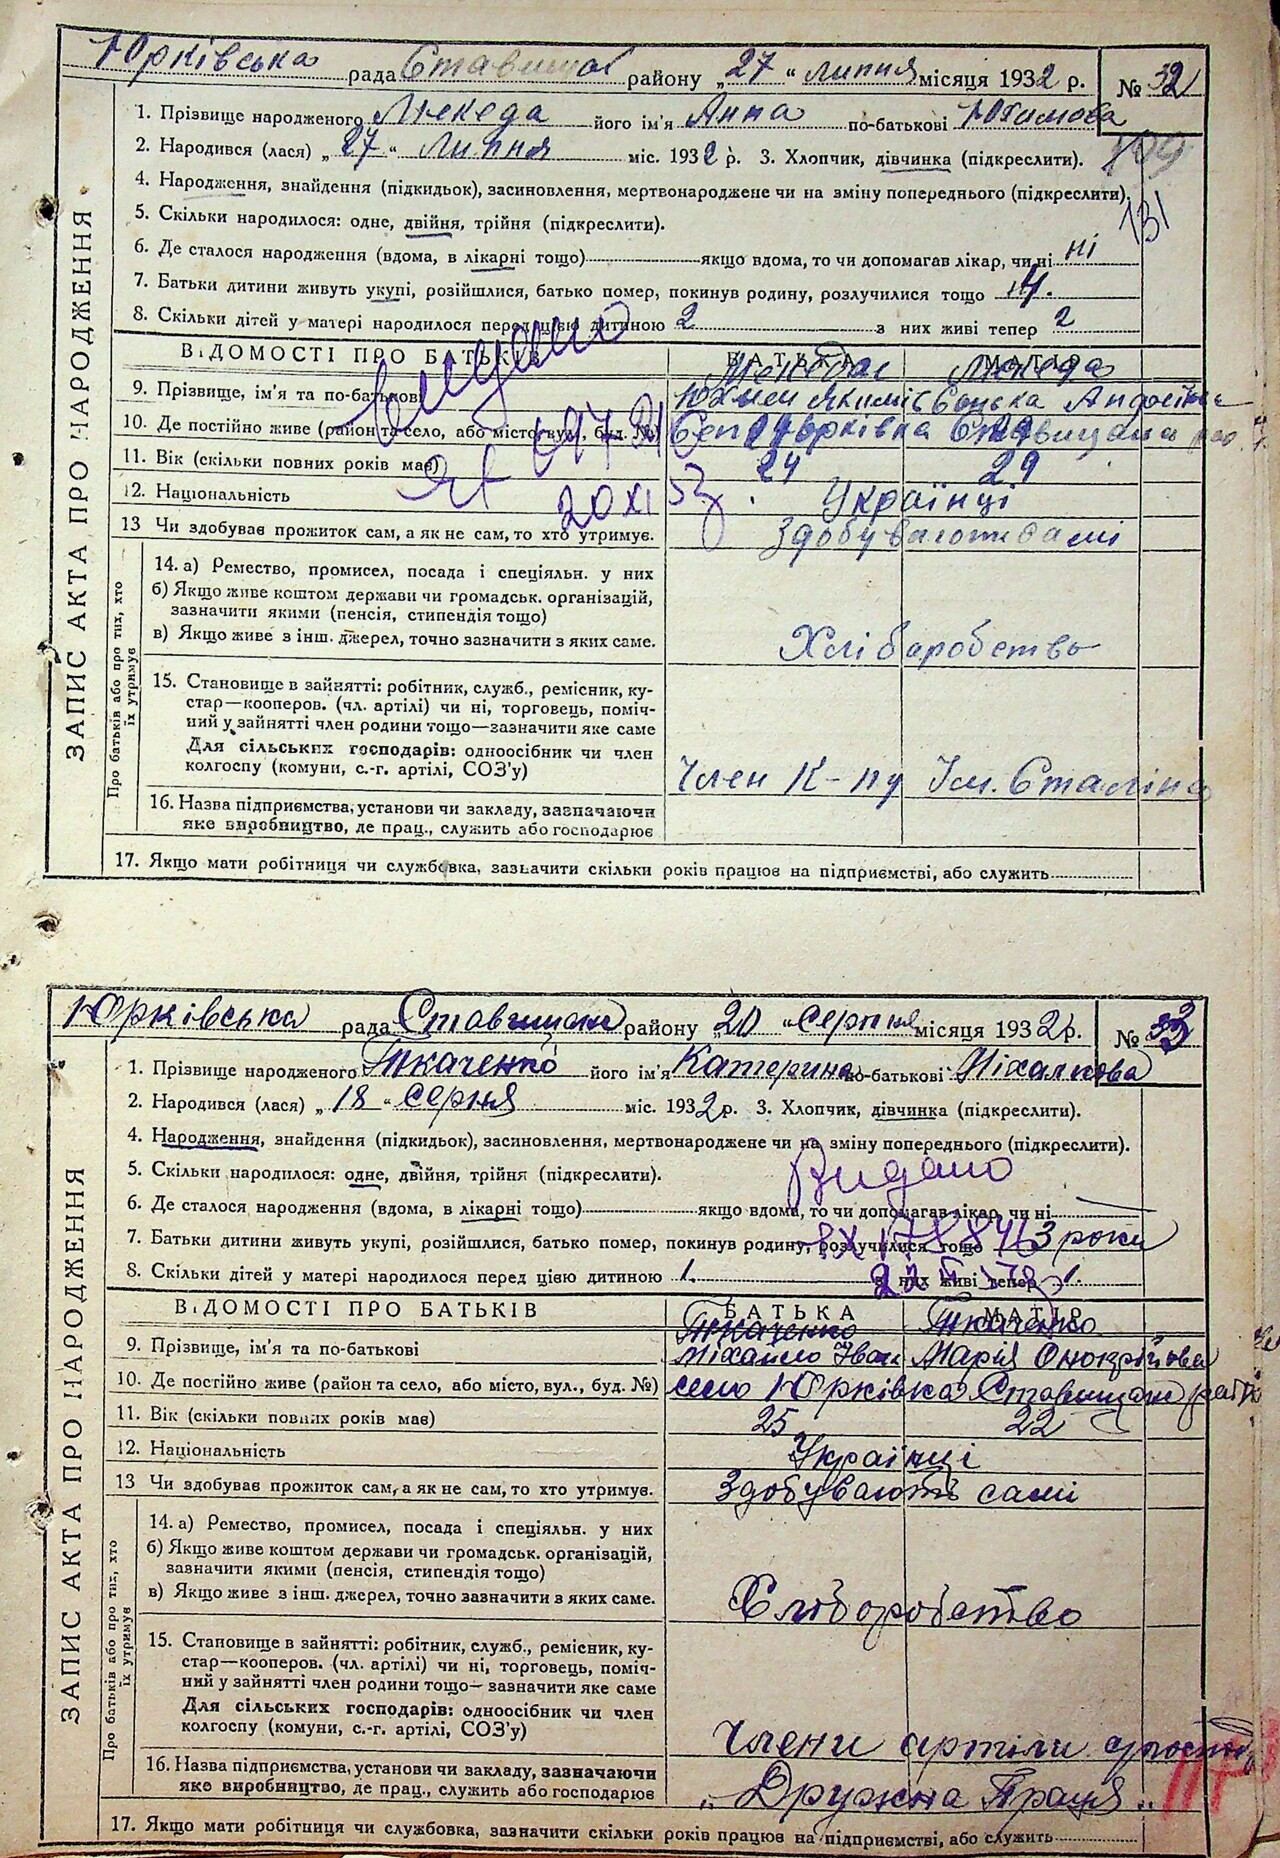 Юрківська рада Ставищан району „27“ липня місяця 1932 р. № 32
1. Прізвище народженого його ім'я Анна по-батькові Юхимова
2. Народився (лася) „27“ Липня міс. 1932 р. 3. Хлопчик, дівчинка (підкреслити).
4. Народження, знайдення (підкидьок), засиновлення, мертвонароджене чи на зміну попереднього (підкреслити).
131
5. Скільки народилося: одне, двійня, трійня (підкреслити).
6. Де сталося народження (вдома, в лікарні тощо) якщо вдома, то чи допомагав лікар, чи ні ні
7. Батьки дитини живуть укупі, розійшлися, батько помер, покинув родину, розлучилися тощо
8. Скільки дітей у матері народилося перед цією дитиною 2 з них живі тепер 2
ВІДОМОСТІ ПРО БАТЬКІВ БАТЬКА МАТІР
9. Прізвище, ім'я та по-батькові
10. Де постійно живе (район та село, або місто, вул., буд. №) Юрківка Ставищана
11. Вік (скільки повних років має) 24 29
12. Національність Українці
20 XI 53
13 Чи здобував прожиток сам, а як не сам, то хто утримує. Здобувають сами
14. а) Ремество, промисел, посада і спеціяльн. у них
б) Якщо живе коштом держави чи громадськ. організацій,
зазначити якими (пенсія, стипендія тощо)
в) Якщо живе з інш. джерел, точно зазначити з яких саме. Хлібаробство
15. Становище в зайнятті: робітник, служб., ремісник, ку-
стар—кооперов. (чл. артілі) чи ні, торговець, поміч-
ний у зайнятті член родини тощо—зазначити яке саме
Для сільських господарів: одноосібник чи член
колгоспу (комуни, с.-г. артілі, СОЗ'у) Член К-пу Ім. Сталіна
16. Назва підприємства, установи чи закладу, зазначаючи
яке виробництво, де прац., служить або господарює
17. Якщо мати робітниця чи службовка, зазначити скільки років працює на підприємстві, або служить
ЗАПИС АКТА ПРО НАРОДЖЕННЯ
Про батьків або про тих, хто
їх утримує
Юрківська рада Ставищан району „20“ серпня місяця 1932 р. № 33
1. Прізвище народженого Ткаченко його ім'я Катерина по-батькові Міхайлова
2. Народився (лася) „18“ серпня міс. 1932 р. 3. Хлопчик, дівчинка (підкреслити).
4. Народження, знайдення (підкидьок), засиновлення, мертвонароджене чи на зміну попереднього (підкреслити).
5. Скільки народилося: одне, двійня, трійня (підкреслити). Видано
6. Де сталося народження (вдома, в лікарні тощо) якщо вдома, то чи допомагав лікар, чи ні
7. Батьки дитини живуть укупі, розійшлися, батько помер, покинув родину, розлучилися тощо 3 роки
8. Скільки дітей у матері народилося перед цією дитиною 1. з них живі тепер 1.
ВІДОМОСТІ ПРО БАТЬКІВ БАТЬКА МАТІР
Ткаченко Ткаченко
9. Прізвище, ім'я та по-батькові Міхайло Іван Марія
10. Де постійно живе (район та село, або місто, вул., буд. №) село Юрківка Ставищан
11. Вік (скільки повних років має) 25 22
12. Національність Українці
13 Чи здобував прожиток сам, а як не сам, то хто утримує. Здобувають сами
14. а) Ремество, промисел, посада і спеціяльн. у них
б) Якщо живе коштом держави чи громадськ. організацій,
зазначити якими (пенсія, стипендія тощо)
в) Якщо живе з інш. джерел, точно зазначити з яких саме. Хліборобство
15. Становище в зайнятті: робітник, служб., ремісник, ку-
стар—кооперов. (чл. артілі) чи ні, торговець, поміч-
ний у зайнятті член родини тощо—зазначити яке саме
Для сільських господарів: одноосібник чи член
колгоспу (комуни, с.-г. артілі, СОЗ'у) Члени артіли
16. Назва підприємства, установи чи закладу, зазначаючи
яке виробництво, де прац., служить або господарює „Дружна Праця“
17. Якщо мати робітниця чи службовка, зазначити скільки років працює на підприємстві, або служить
ЗАПИС АКТА ПРО НАРОДЖЕННЯ
Про батьків або про тих, хто
їх утримує